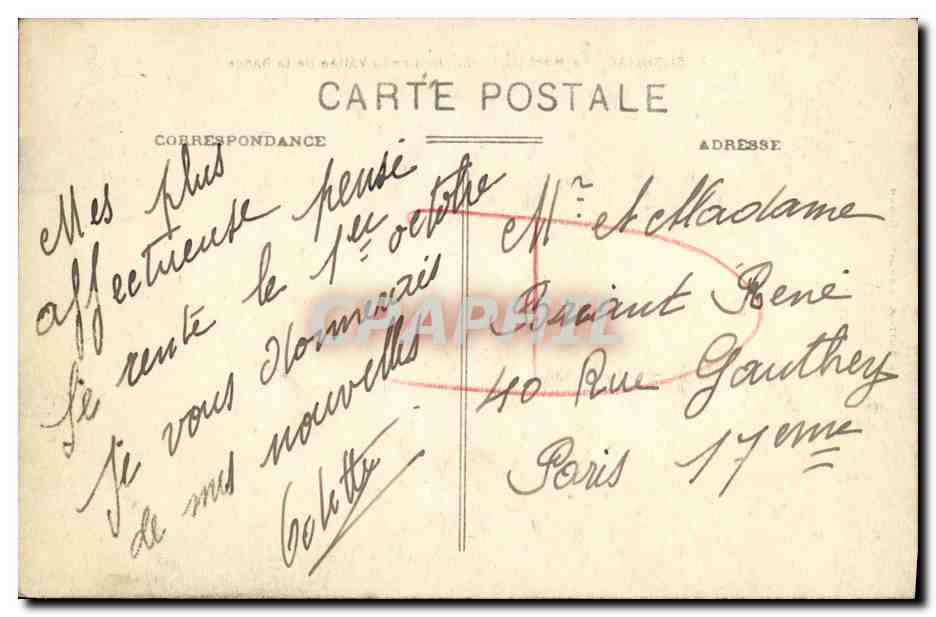 CARTE POSTALE
CORRESPONDANCE
ADRESSE
Mes plus
affectueuse pensé
Je renté le 1er octobre
je vous donnerais
de mes nouvelles
Colette
Mr et Madame
Briant René
40 Rue Gauthey
Paris 17eme
CPAPHIL